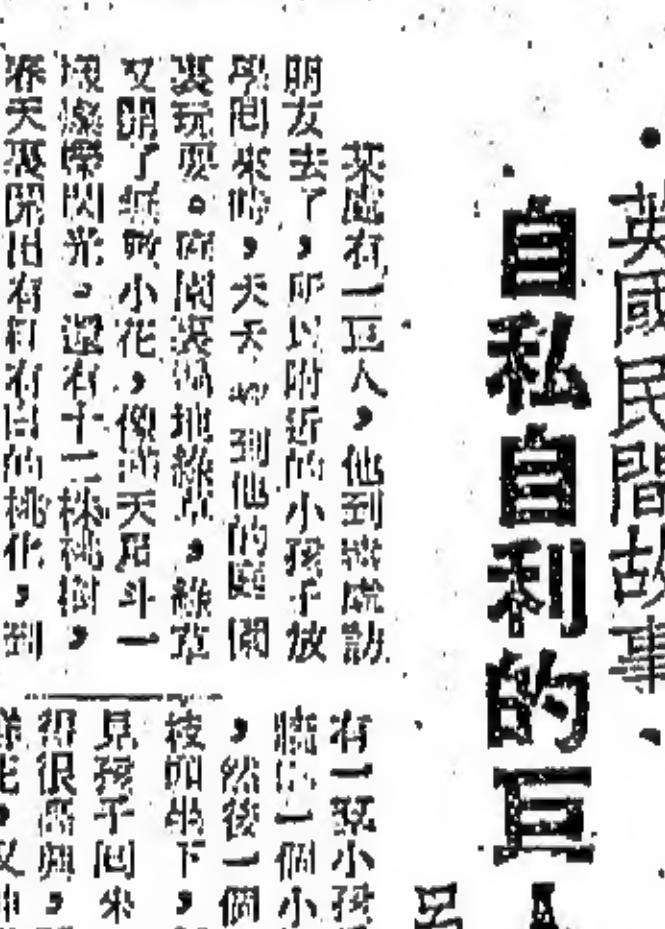 ・英國民間故事・
自私自利的巨人
某處有一巨人，他到遠處訪
朋友去了，所以附近的小孩子放
學回來時，天天都到他的庭園
裏玩耍。庭園裏滿地綠草，綠草
又開了無數小花，像滿天星斗一
樣燦爛閃光。還有十二株桃樹，
春天裏開出有紅有白的桃花，到
有一羣小孩
牆　一個小
，然後一個
枝　坐下，
見孩子回來
得很高興，
花，又